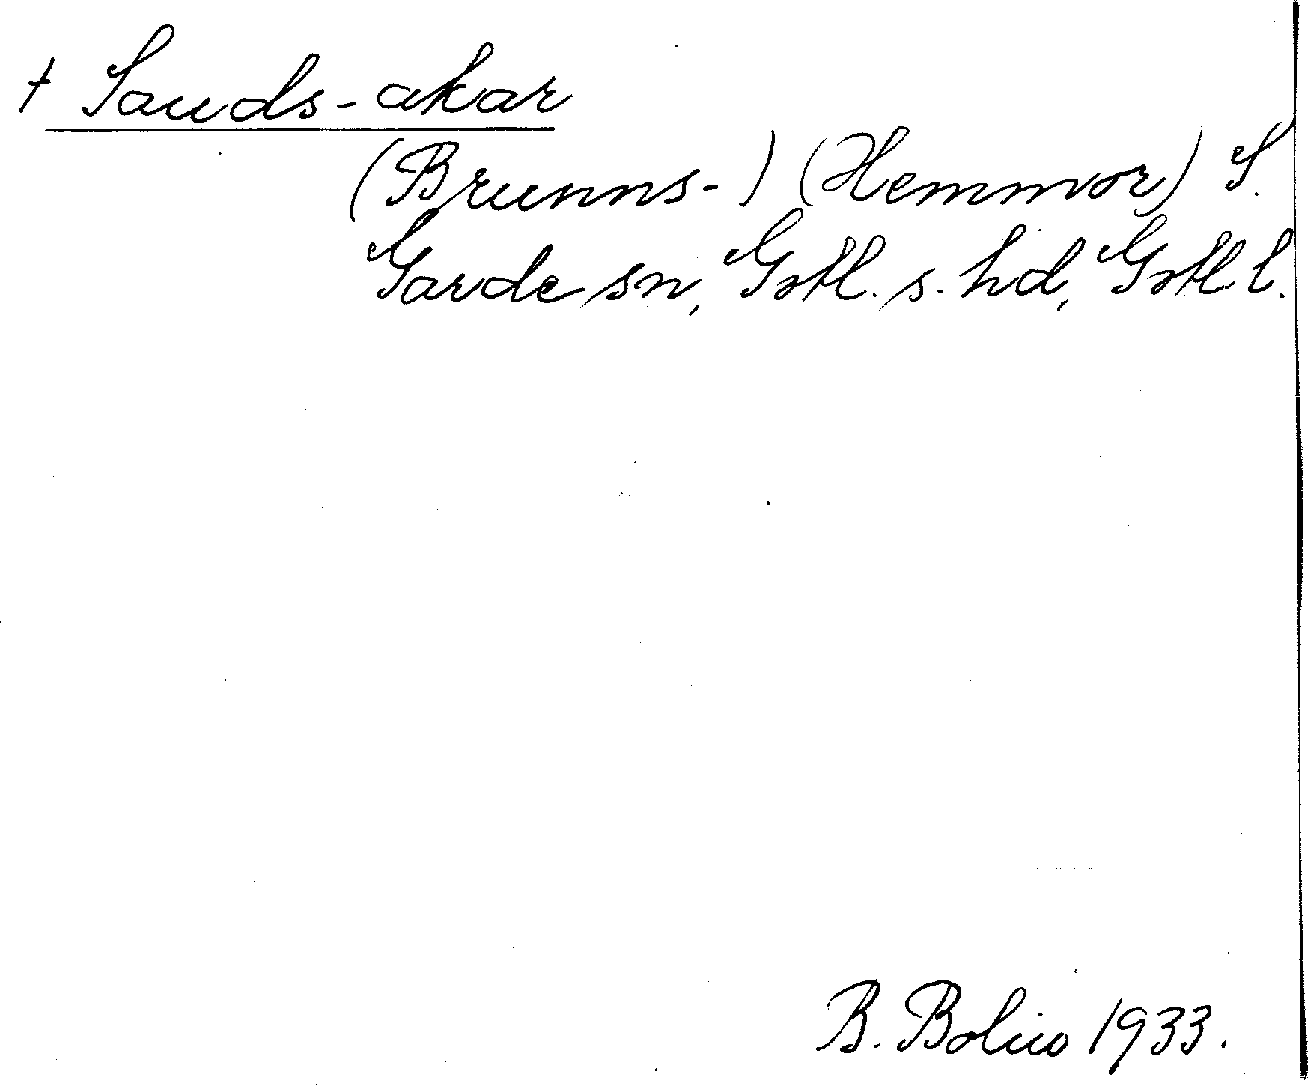 † Sauds-akar
(Brunns-) (Hemmor) S.
Garde sn, Gotl. s. hd, Gotl. l.
B. Bolin 1933.